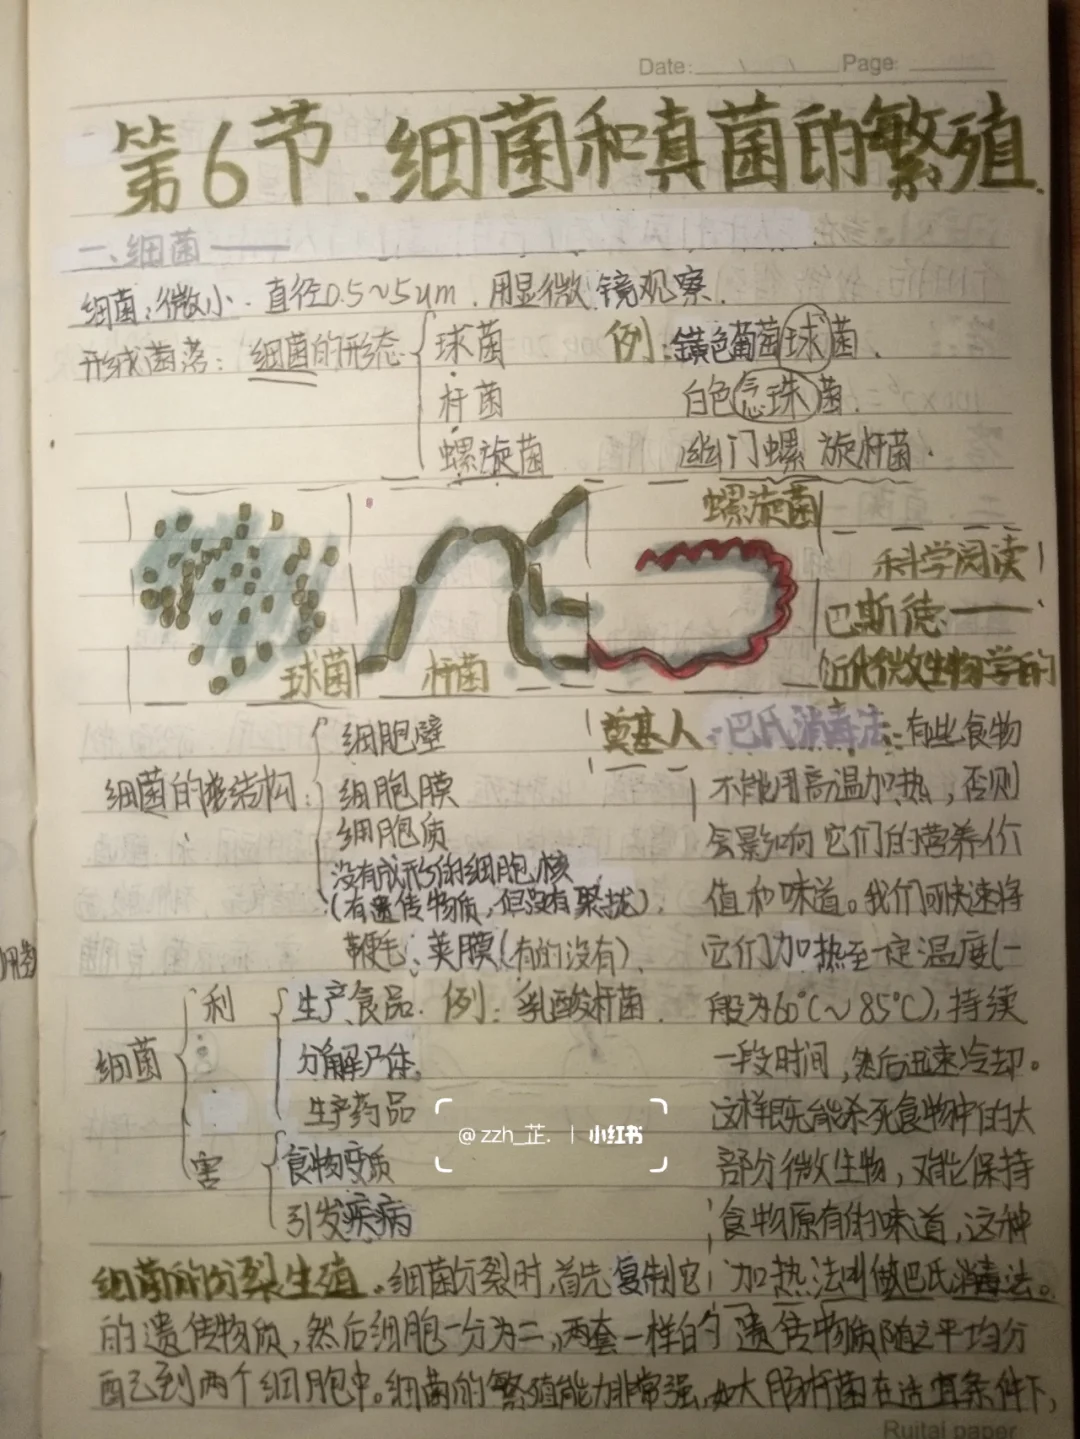 Date: Page:
第6节、细菌和真菌的繁殖.
一、细菌
细菌:微小.直径0.5~5μm.用显微镜观察.
形成菌落:细菌的形态 球菌 例:黄色葡萄球菌.
杆菌 白色念珠菌.
螺旋菌 幽门螺旋杆菌.
球菌 杆菌 螺旋菌
科学阅读
巴斯德——
近代微生物学的
奠基人.巴氏消毒法:有些食物
不能用高温加热,否则
会影响它们的营养价
值和味道。我们可快速将
它们加热至一定温度(一
般为60℃~85℃),持续
一段时间,然后迅速冷却。
这样既能杀死食物中的大
部分微生物,又能保持
食物原有的味道,这种
加热法叫做巴氏消毒法。
细菌的结构: 细胞壁
细胞膜
细胞质
没有成形的细胞核
(有遗传物质,但没有聚拢).
鞭毛、荚膜(有的没有).
细菌 利 生产食品.例:乳酸杆菌.
分解尸体,
生产药品
害 食物变质
引发疾病
细菌的分裂生殖。细菌分裂时,首先复制它
的遗传物质,然后细胞一分为二,两套一样的遗传物质随之平均分
配已到两个细胞中。细菌的繁殖能力非常强,如大肠杆菌在适宜条件下,
@zzh_芷. | 小红书
Ruital paper